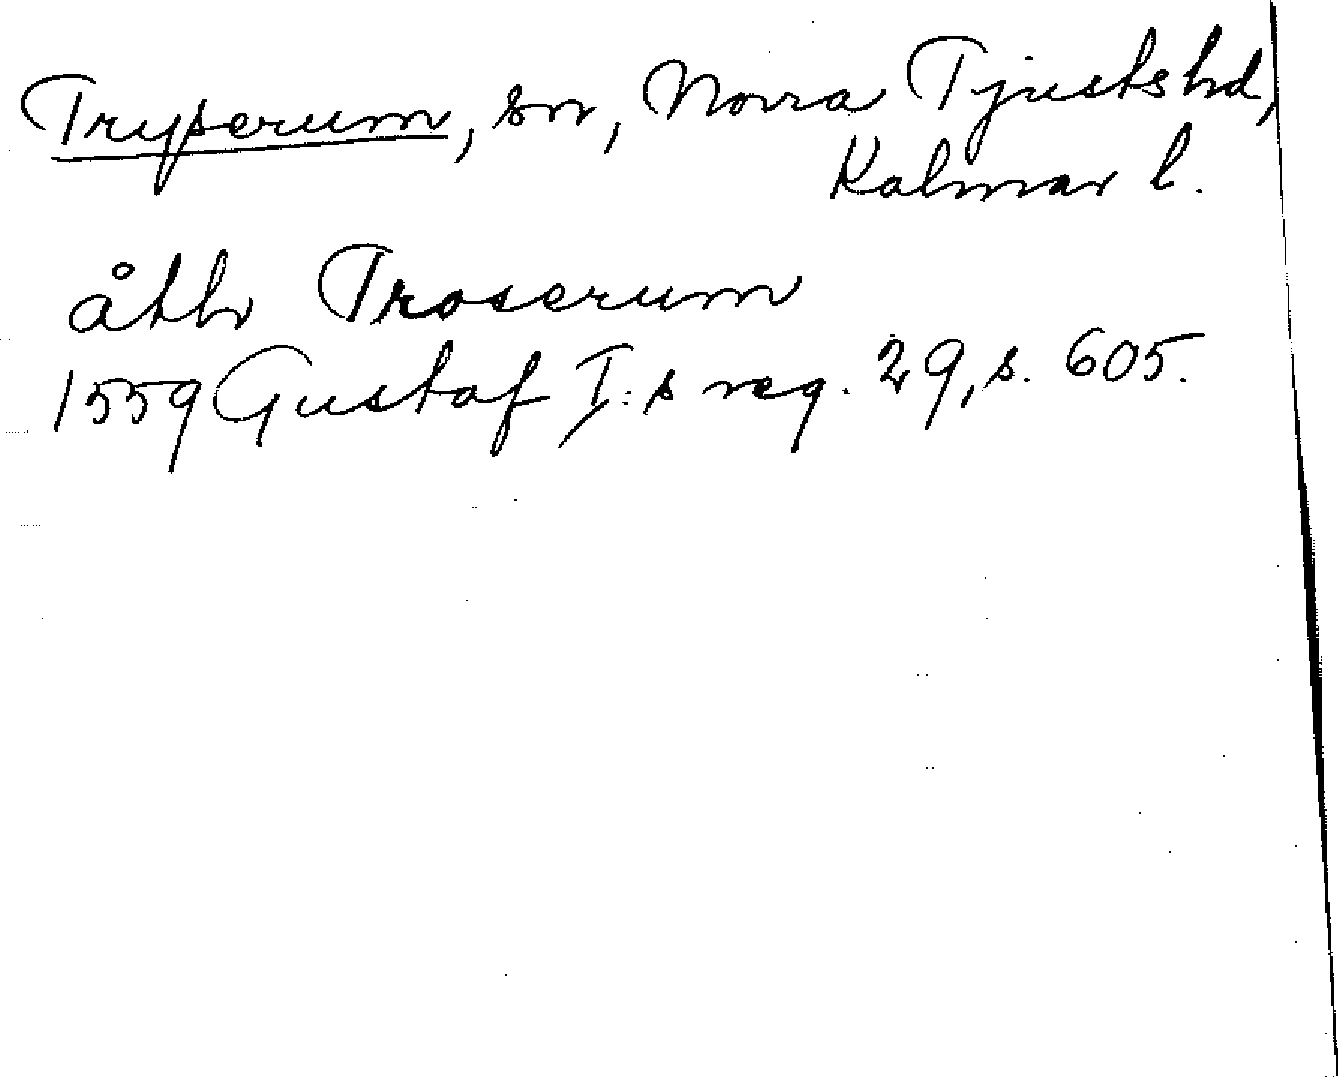 Tryserum, sn, Norra Tjusts hd,
Kalmar l.
åthr Troserum
1559 Gustaf I:s reg. 29, s. 605.